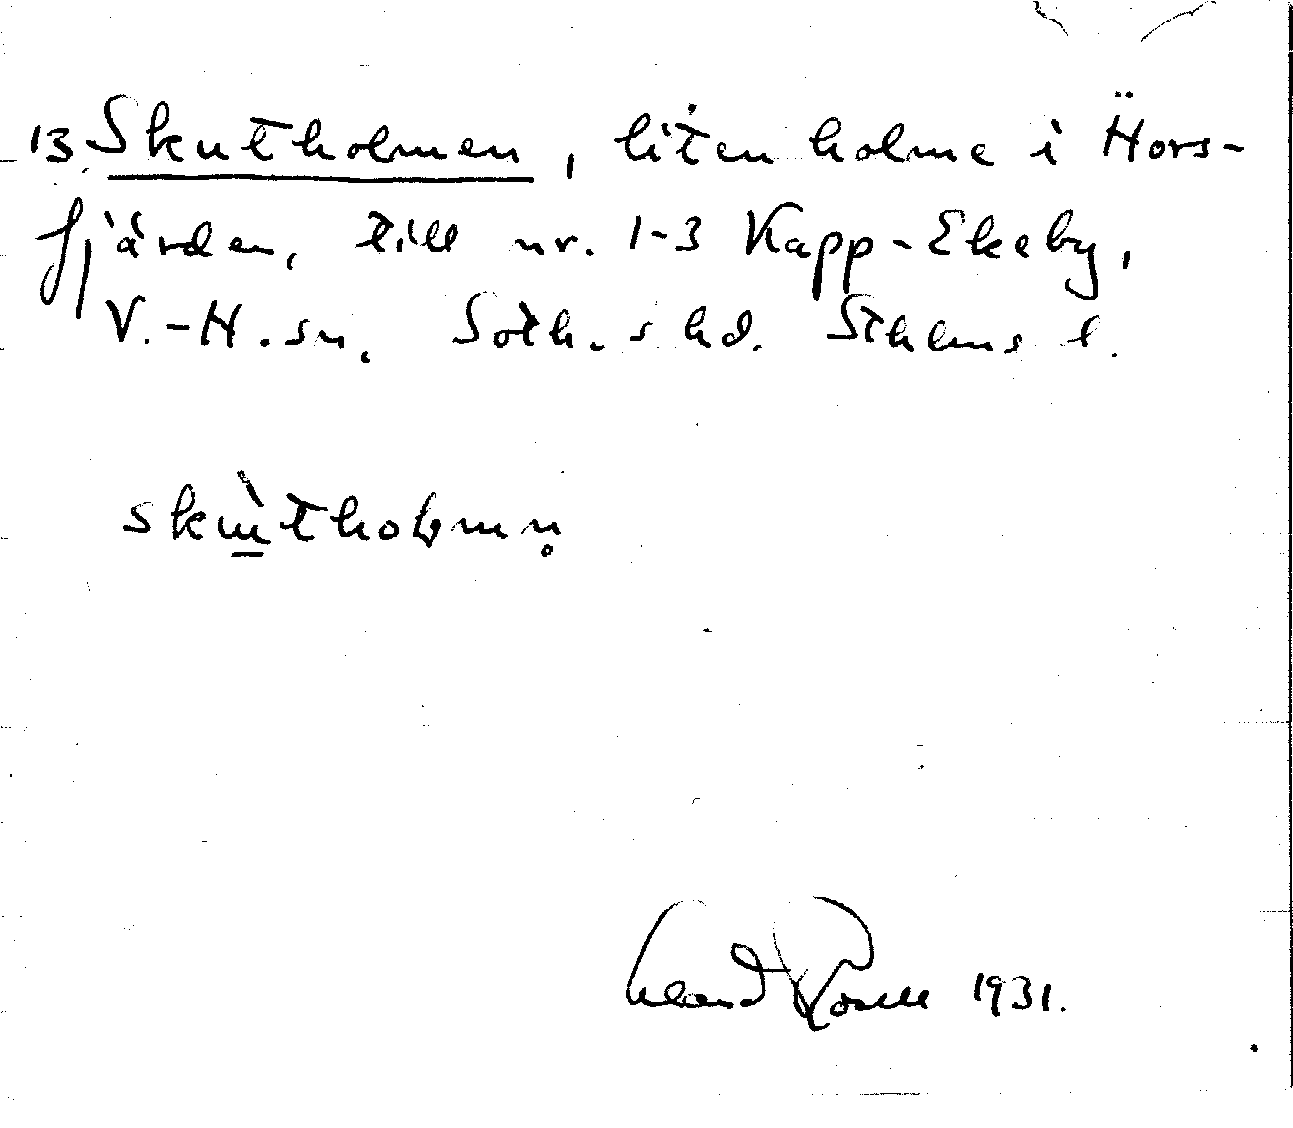 13 Skutholmen, liten holme i Hors-
fjärden, till nr. 1-3 Kapp-Ekeby,
V.-H. sn. Soth. s hd. Sthlms l.
skɯ̱̀tholmn̥
1931.